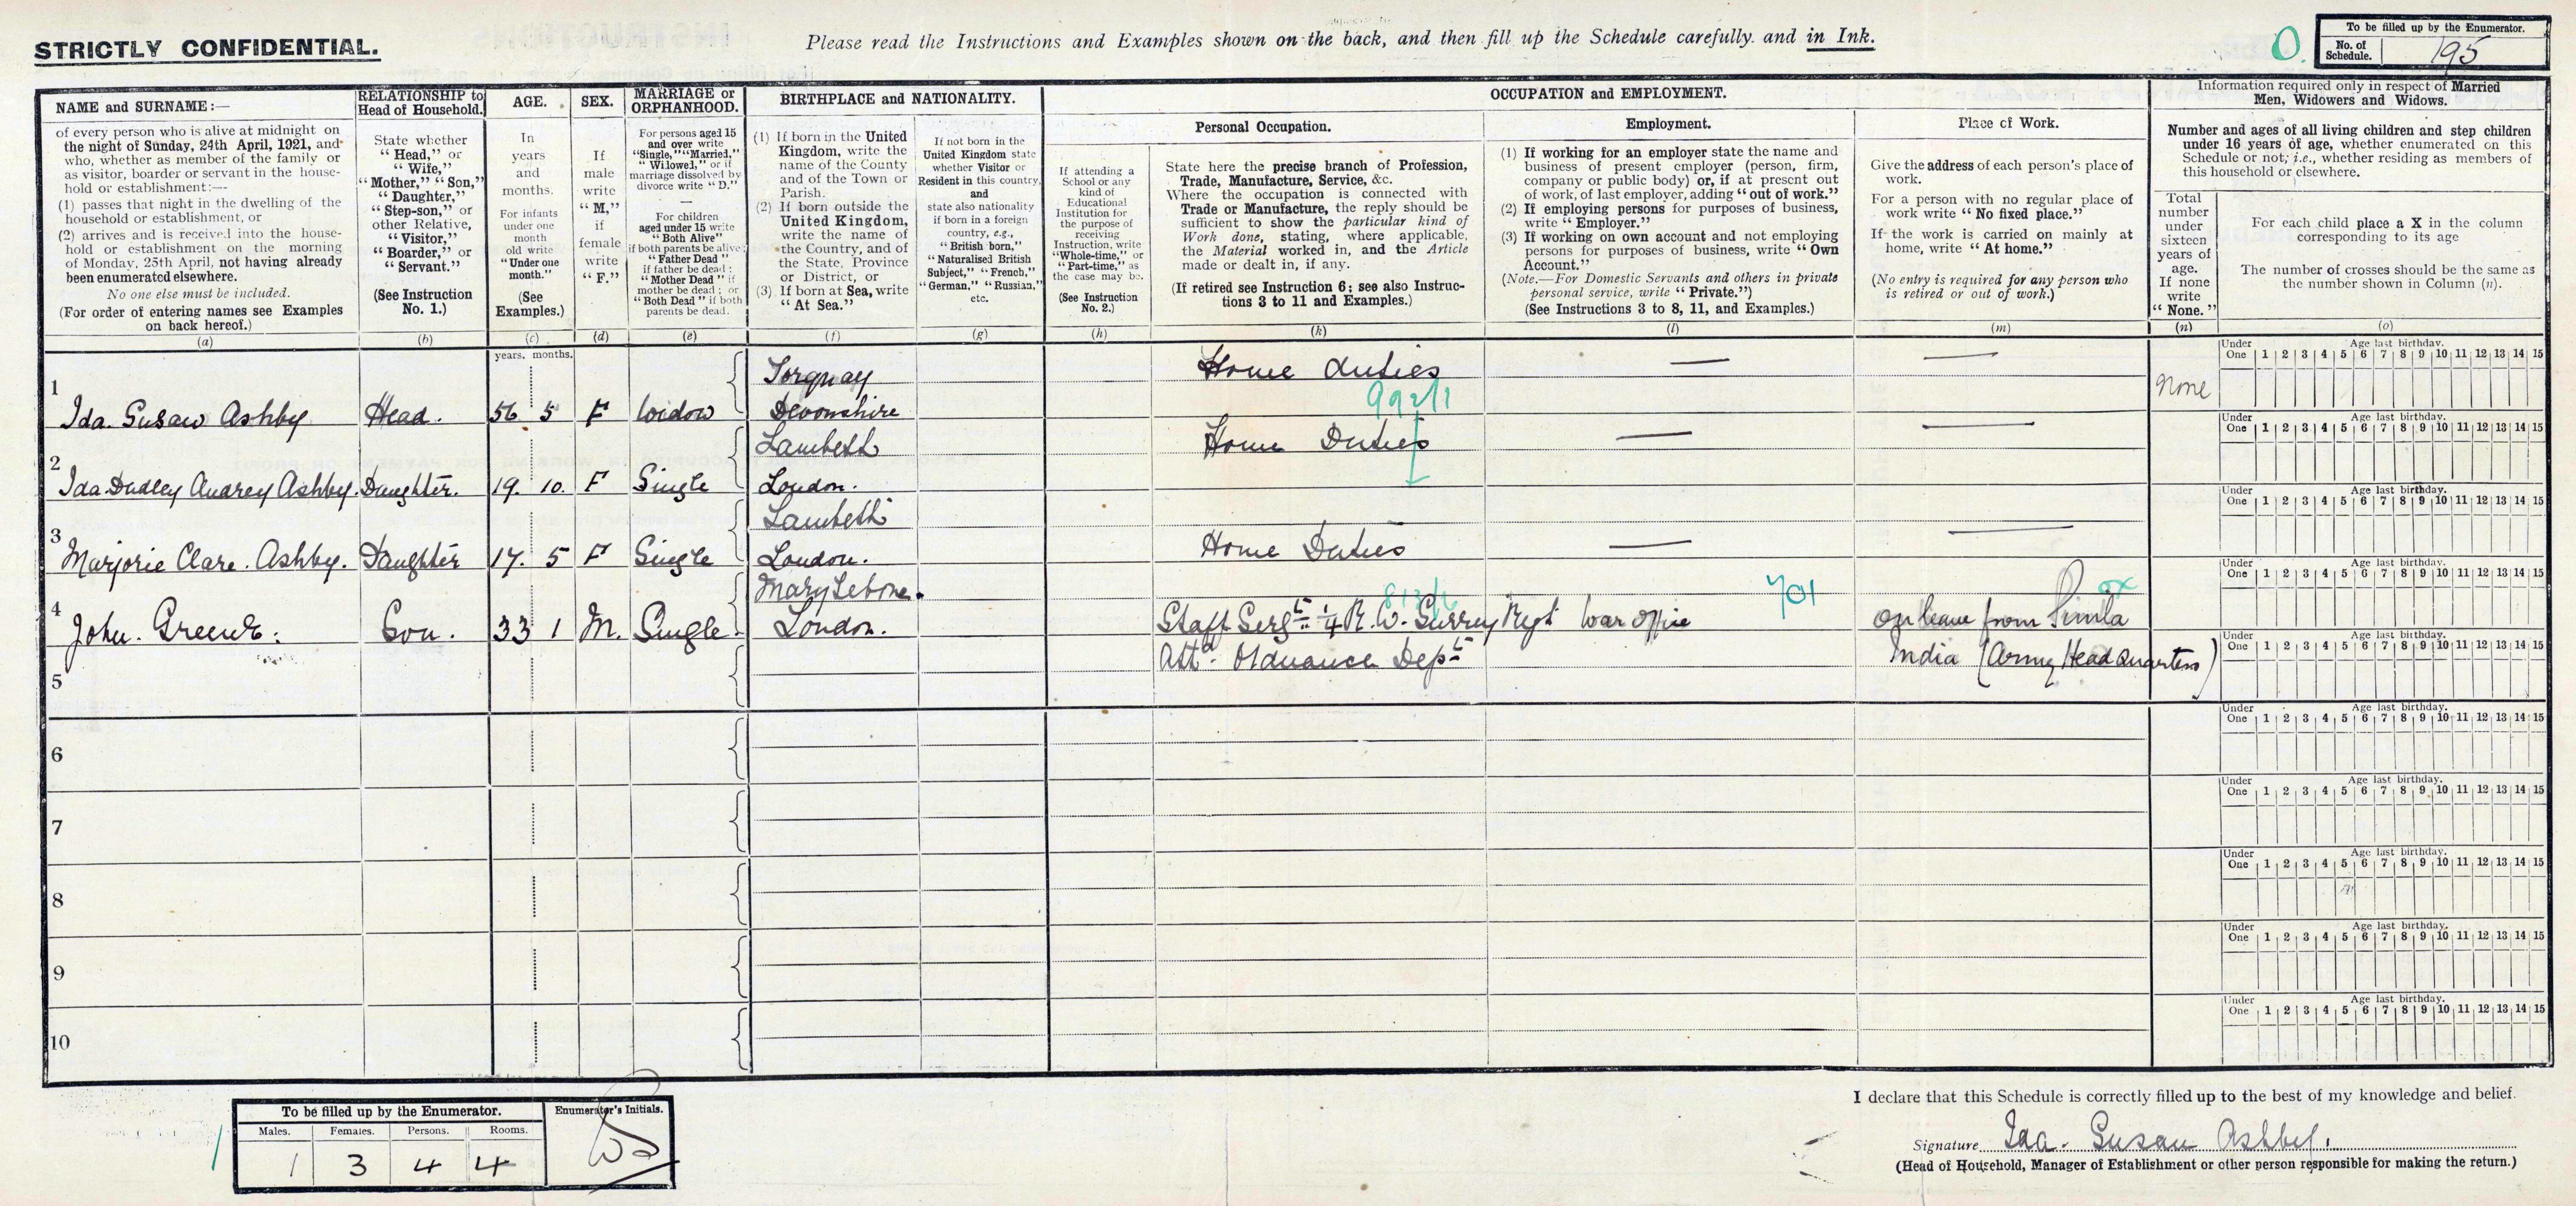 STRICTLY CONFIDENTIAL.
Please read the Instructions and Examples shown on the back, and then fill up the Schedule carefully and in Ink.
O.
To be filled up by the Enumerator.
No. of Schedule. 195
NAME and SURNAME:—
of every person who is alive at midnight on
the night of Sunday, 24th April, 1921, and
who, whether as member of the family or
as visitor, boarder or servant in the house-
hold or establishment:—
(1) passes that night in the dwelling of the
household or establishment, or
(2) arrives and is received into the house-
hold or establishment on the morning
of Monday, 25th April, not having already
been enumerated elsewhere.
No one else must be included.
(For order of entering names see Examples
on back hereof.)
(a)
RELATIONSHIP to
Head of Household.
State whether
"Head," or
"Wife,"
"Mother," "Son,"
"Daughter,"
"Step-son," or
other Relative,
"Visitor,"
"Boarder," or
"Servant."
(See Instruction
No. 1.)
(b)
AGE.
In
years
and
months.
For infants
under one
month
old write
"Under one
month."
(See
Examples.)
(c)
SEX.
If
male
write
"M,"
if
female
write
"F."
(d)
MARRIAGE or
ORPHANHOOD.
For persons aged 15
and over write
"Single," "Married,"
"Widowed," or if
marriage dissolved by
divorce write "D."
—
For children
aged under 15 write
"Both Alive"
if both parents be alive;
"Father Dead"
if father be dead;
"Mother Dead" if
mother be dead; or
"Both Dead" if both
parents be dead.
(e)
BIRTHPLACE and NATIONALITY.
(1) If born in the United
Kingdom, write the
name of the County
and of the Town or
Parish.
(2) If born outside the
United Kingdom,
write the name of
the Country, and of
the State, Province
or District, or
(3) If born at Sea, write
"At Sea."
(f)
If not born in the
United Kingdom state
whether Visitor or
Resident in this country,
and
state also nationality
if born in a foreign
country, e.g.,
"British born,"
"Naturalised British
Subject," "French,"
"German," "Russian,"
etc.
(g)
OCCUPATION and EMPLOYMENT.
If attending a
School or any
kind of
Educational
Institution for
the purpose of
receiving
Instruction, write
"Whole-time," or
"Part-time," as
the case may be.
(See Instruction
No. 2.)
(h)
Personal Occupation.
State here the precise branch of Profession,
Trade, Manufacture, Service, &c.
Where the occupation is connected with
Trade or Manufacture, the reply should be
sufficient to show the particular kind of
Work done, stating, where applicable,
the Material worked in, and the Article
made or dealt in, if any.
(If retired see Instruction 6; see also Instruc-
tions 3 to 11 and Examples.)
(k)
Employment.
(1) If working for an employer state the name and
business of present employer (person, firm,
company or public body) or, if at present out
of work, of last employer, adding "out of work."
(2) If employing persons for purposes of business,
write "Employer."
(3) If working on own account and not employing
persons for purposes of business, write "Own
Account."
(Note.—For Domestic Servants and others in private
personal service, write "Private.")
(See Instructions 3 to 8, 11, and Examples.)
(l)
Place of Work.
Give the address of each person's place of
work.
For a person with no regular place of
work write "No fixed place."
If the work is carried on mainly at
home, write "At home."
(No entry is required for any person who
is retired or out of work.)
(m)
Information required only in respect of Married
Men, Widowers and Widows.
Number and ages of all living children and step children
under 16 years of age, whether enumerated on this
Schedule or not; i.e., whether residing as members of
this household or elsewhere.
Total
number
under
sixteen
years of
age.
If none
write
"None."
(n)
For each child place a X in the column
corresponding to its age
The number of crosses should be the same as
the number shown in Column (n).
(o)
years. months.
1 Ida Susan Ashby Head. 56 5 F Widow Torquay Devonshire Home duties — — None
992/1
Under One Age last birthday. 1 2 3 4 5 6 7 8 9 10 11 12 13 14 15
2 Ida Dudley Audrey Ashby. Daughter. 19. 10. F Single Lambeth London. Home Duties — —
Under One Age last birthday. 1 2 3 4 5 6 7 8 9 10 11 12 13 14 15
3 Marjorie Clare. Ashby. Daughter 17. 5 F Single Lambeth London. Home Duties — —
Under One Age last birthday. 1 2 3 4 5 6 7 8 9 10 11 12 13 14 15
4 John. Greene. Son. 33 1 M. Single. Marylebone. London. Staff Sergt 1/4 R. W. Surrey Regt War Office 701 on leave from Simla
Under One Age last birthday. 1 2 3 4 5 6 7 8 9 10 11 12 13 14 15
5 Attd. Ordnance Dept India (Army Head Quarters)
Under One Age last birthday. 1 2 3 4 5 6 7 8 9 10 11 12 13 14 15
6
Under One Age last birthday. 1 2 3 4 5 6 7 8 9 10 11 12 13 14 15
7
Under One Age last birthday. 1 2 3 4 5 6 7 8 9 10 11 12 13 14 15
8
Under One Age last birthday. 1 2 3 4 5 6 7 8 9 10 11 12 13 14 15
9
Under One Age last birthday. 1 2 3 4 5 6 7 8 9 10 11 12 13 14 15
10
Under One Age last birthday. 1 2 3 4 5 6 7 8 9 10 11 12 13 14 15
To be filled up by the Enumerator.
Enumerator's Initials.
Males. Females. Persons. Rooms.
1 3 4 4
I declare that this Schedule is correctly filled up to the best of my knowledge and belief.
Signature Ida. Susan Ashby.
(Head of Household, Manager of Establishment or other person responsible for making the return.)